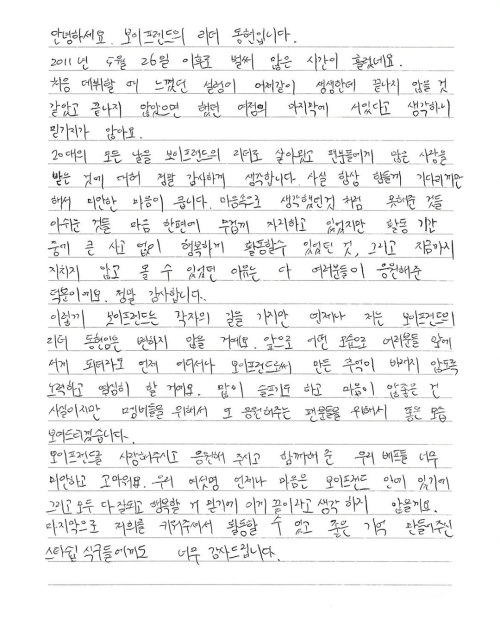 안녕하세요. 보이프렌드의 리더 동현입니다.
2011년 5월 26일 이후로 벌써 많은 시간이 흘렀네요.
처음 데뷔할 때 느꼈던 설렘이 어제같이 생생한데 끝나지 않을 것
같았고 끝나지 않았으면 했던 여정의 마지막에 서있다고 생각하니
믿기지가 않아요.
20대의 모든 날을 보이프렌드의 리더로 살아왔고 팬분들에게 많은 사랑을
받은 것에 대해 정말 감사하게 생각합니다. 사실 항상 힘들게 기다리게만
해서 미안한 마음이 큽니다. 마음속으로 생각했던것 처럼 못해준 것들
아쉬운 것들 마음 한편에 무겁게 자리하고 있었지만 활동 기간
동안 큰 사고 없이 행복하게 활동할수 있었던 것, 그리고 지금까지
지치지 않고 올 수 있었던 이유는 다 여러분들이 응원해준
덕분이에요. 정말 감사합니다.
이렇게 보이프렌드는 각자의 길을 가지만 언제나 저는 보이프렌드의
리더 동현임은 변하지 않을 거에요. 앞으로 어떤 모습으로 여러분들 앞에
서게 되더라도 언제 어디서나 보이프렌드로써 만든 추억이 바래지 않도록
노력하고 열심히 할 거에요. 많이 슬프기도 하고 마음이 안좋은 건
사실이지만 멤버들을 위해서 또 응원해주는 팬분들을 위해서 좋은 모습
보여드리겠습니다.
보이프렌드를 사랑해주시고 응원해 주시고 함께해 준 우리 베프들 너무
미안하고 고마워요. 우리 여섯명 언제나 마음은 보이프렌드 안에 있기에
그리고 모두 다 잘되고 행복할 거 믿기에 이게 끝이라고 생각 하지 않을게요.
마지막으로 저희를 키워주셔서 활동할 수 있고 좋은 기억 만들어주신
스타쉽 식구들에게도 너무 감사드립니다.